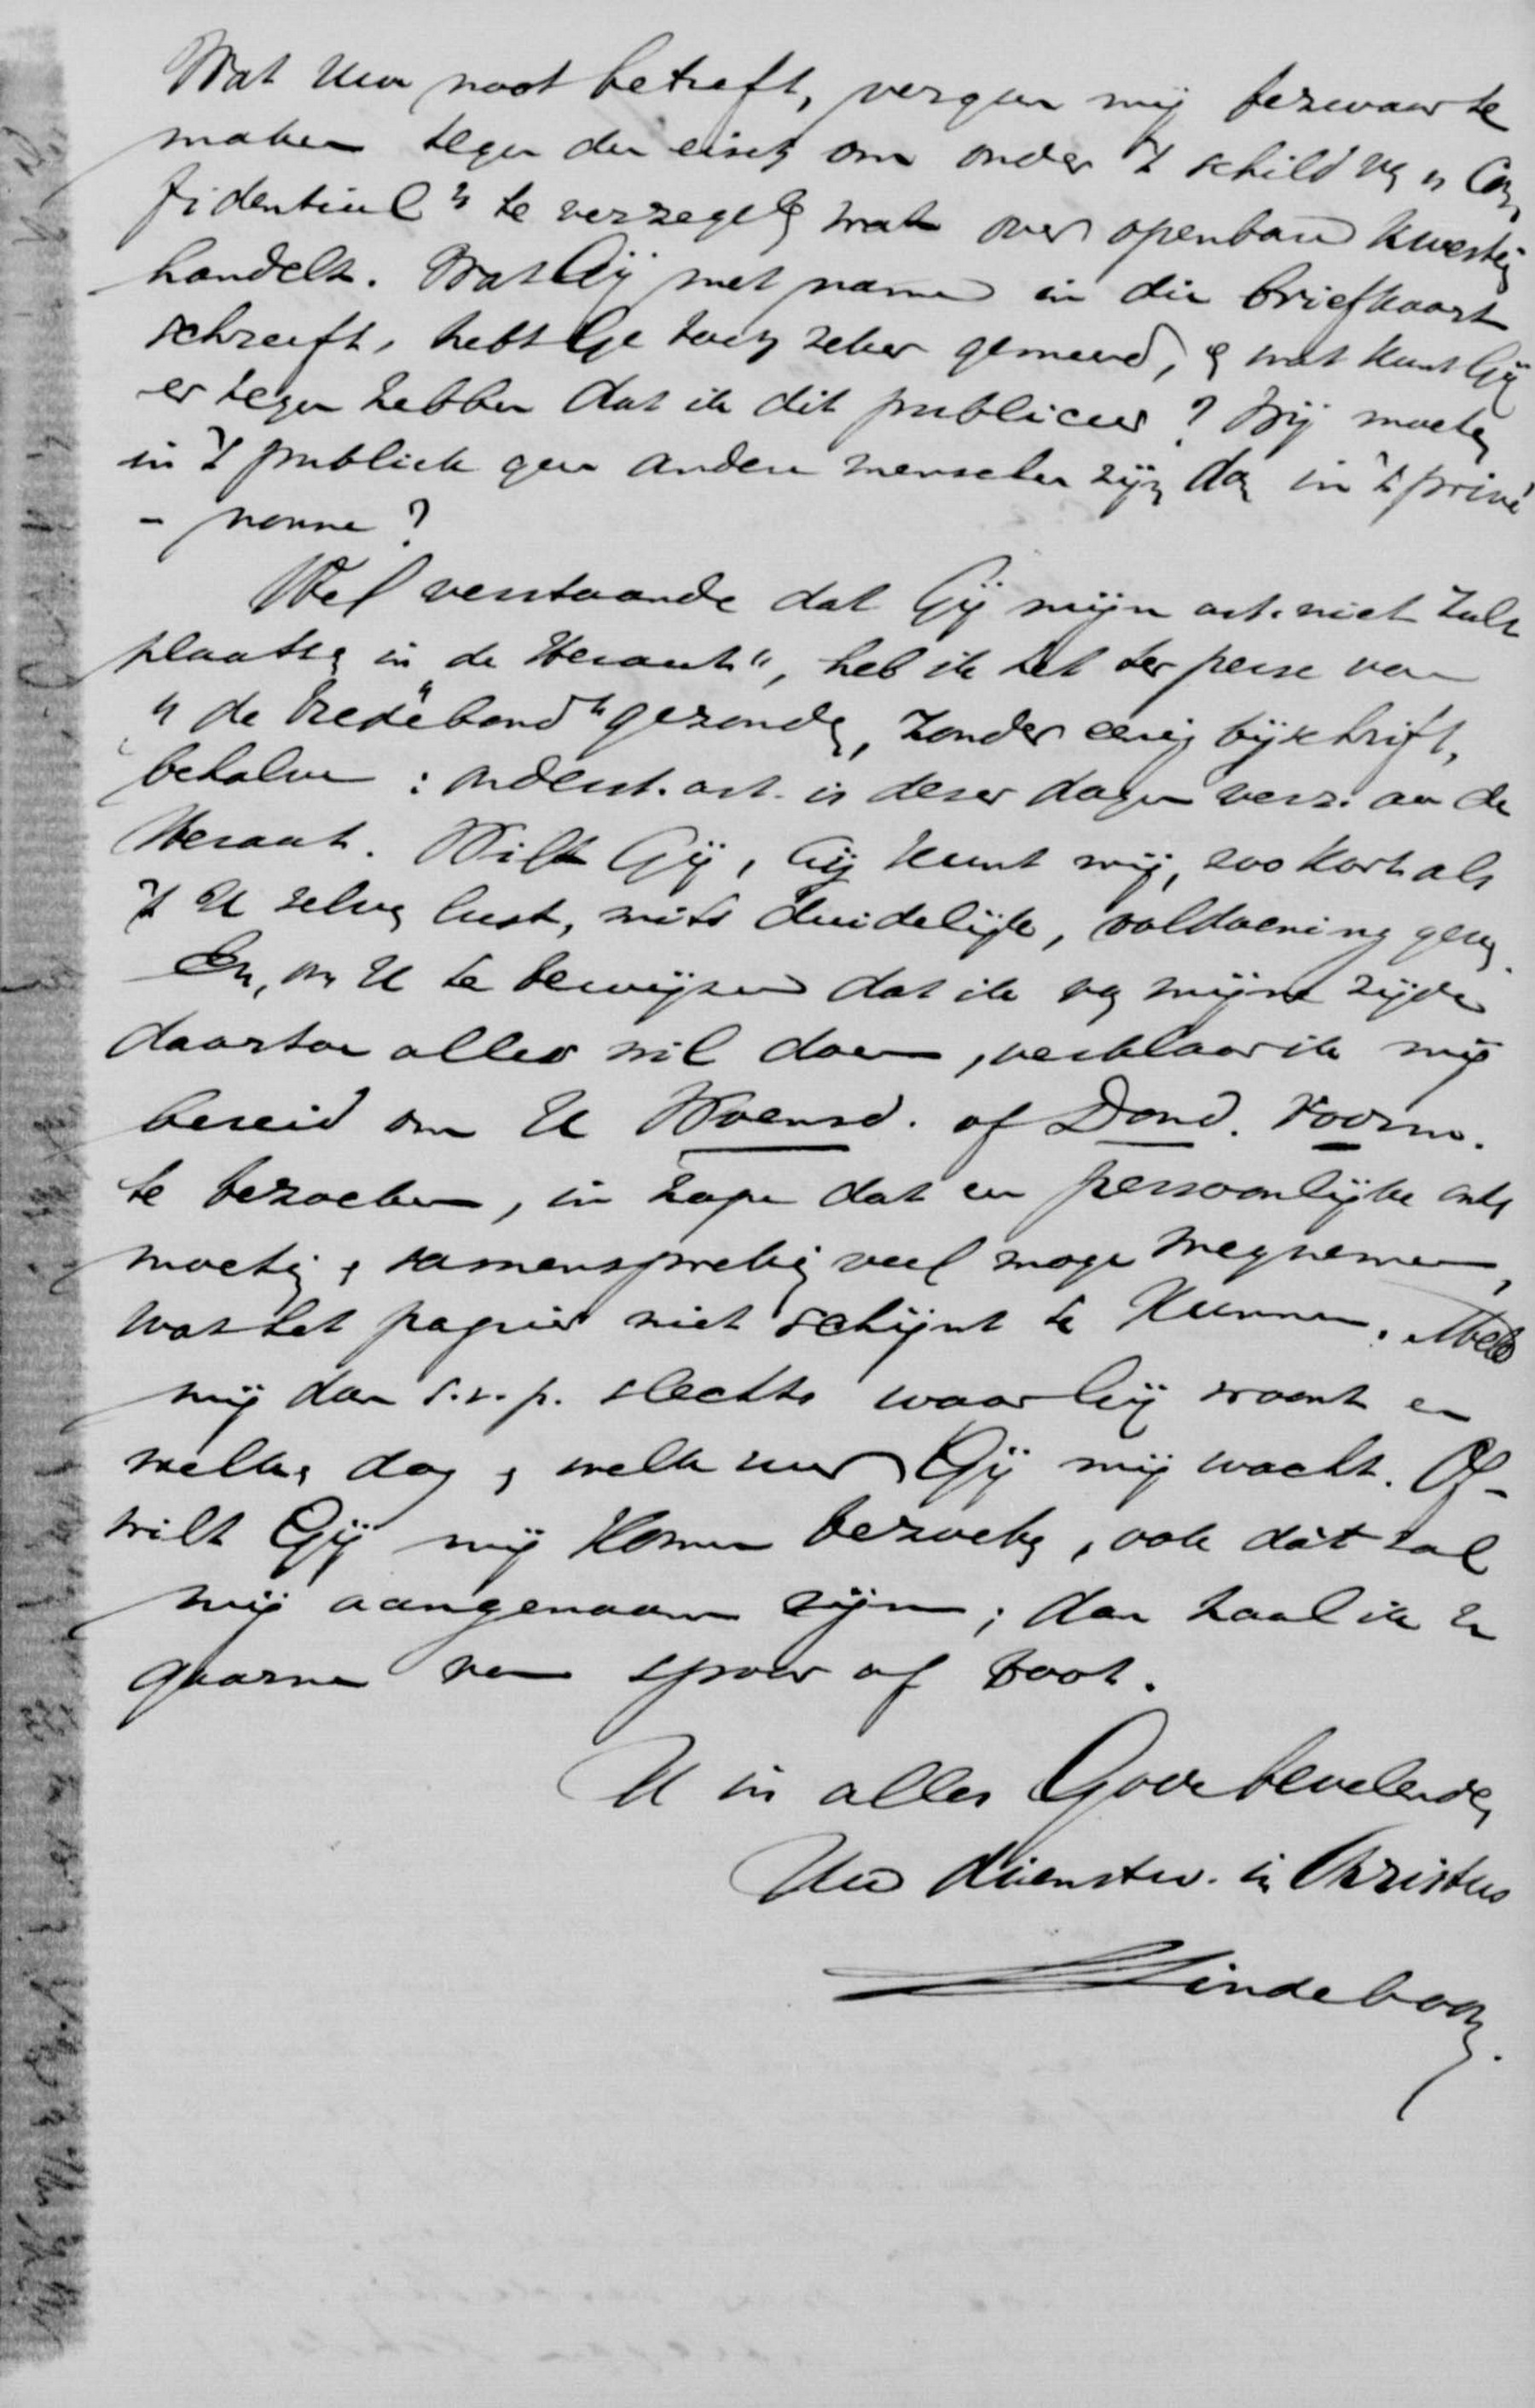 Wat Uw noot betreft, vergun mij bezwaar te
maken tegen den eisch om onder 't schild van „Con
fidentieel" te verzegelen wat over openbare kwestien
handelt. Wat Gij met name in die briefkaart
schreeft, hebt Ge toch zeker gemeend, en wat kunt Gij
er tegen hebben dat ik dit publiceer? Wij moeten
in 't publiek geen andere menschen zijn dan in 't privé
- nonne?
Wel verstaande dat Gij mijn art. niet zult
plaatsen in de Heraut", heb ik het ter perse van
„de Vredeband" gezonden, zonder eenig bijschrift,
behalve: onderst. art. is dezer dagen verz. aan de
Heraut. Wilt Gij, Gij kunt mij, zoo kort als
't U zelven lust, mits duidelijk, voldoening geven.
En, om U te bewijzen dat ik van mijne zijde
daartoe alles wil doen, verklaar ik mij
bereid om U Woensd. of Dond. Voorm.
te bezoeken, in hope dat een persoonlijke ont
moeting en samenspreking veel moge wegnemen,
wat het papier niet schijnt te kunnen. Meld
mij dan s.v.p. slechts waar Gij woont en
welken dag en welk uur Gij mij wacht. Of -
wilt Gij mij komen bezoeken, ook dàt zal
mij aangenaam zijn; dan haal ik U
gaarne van spoor of boot.
U in alles Gode bevelende,
Uw dienstw. in Christus
Lindeboom.